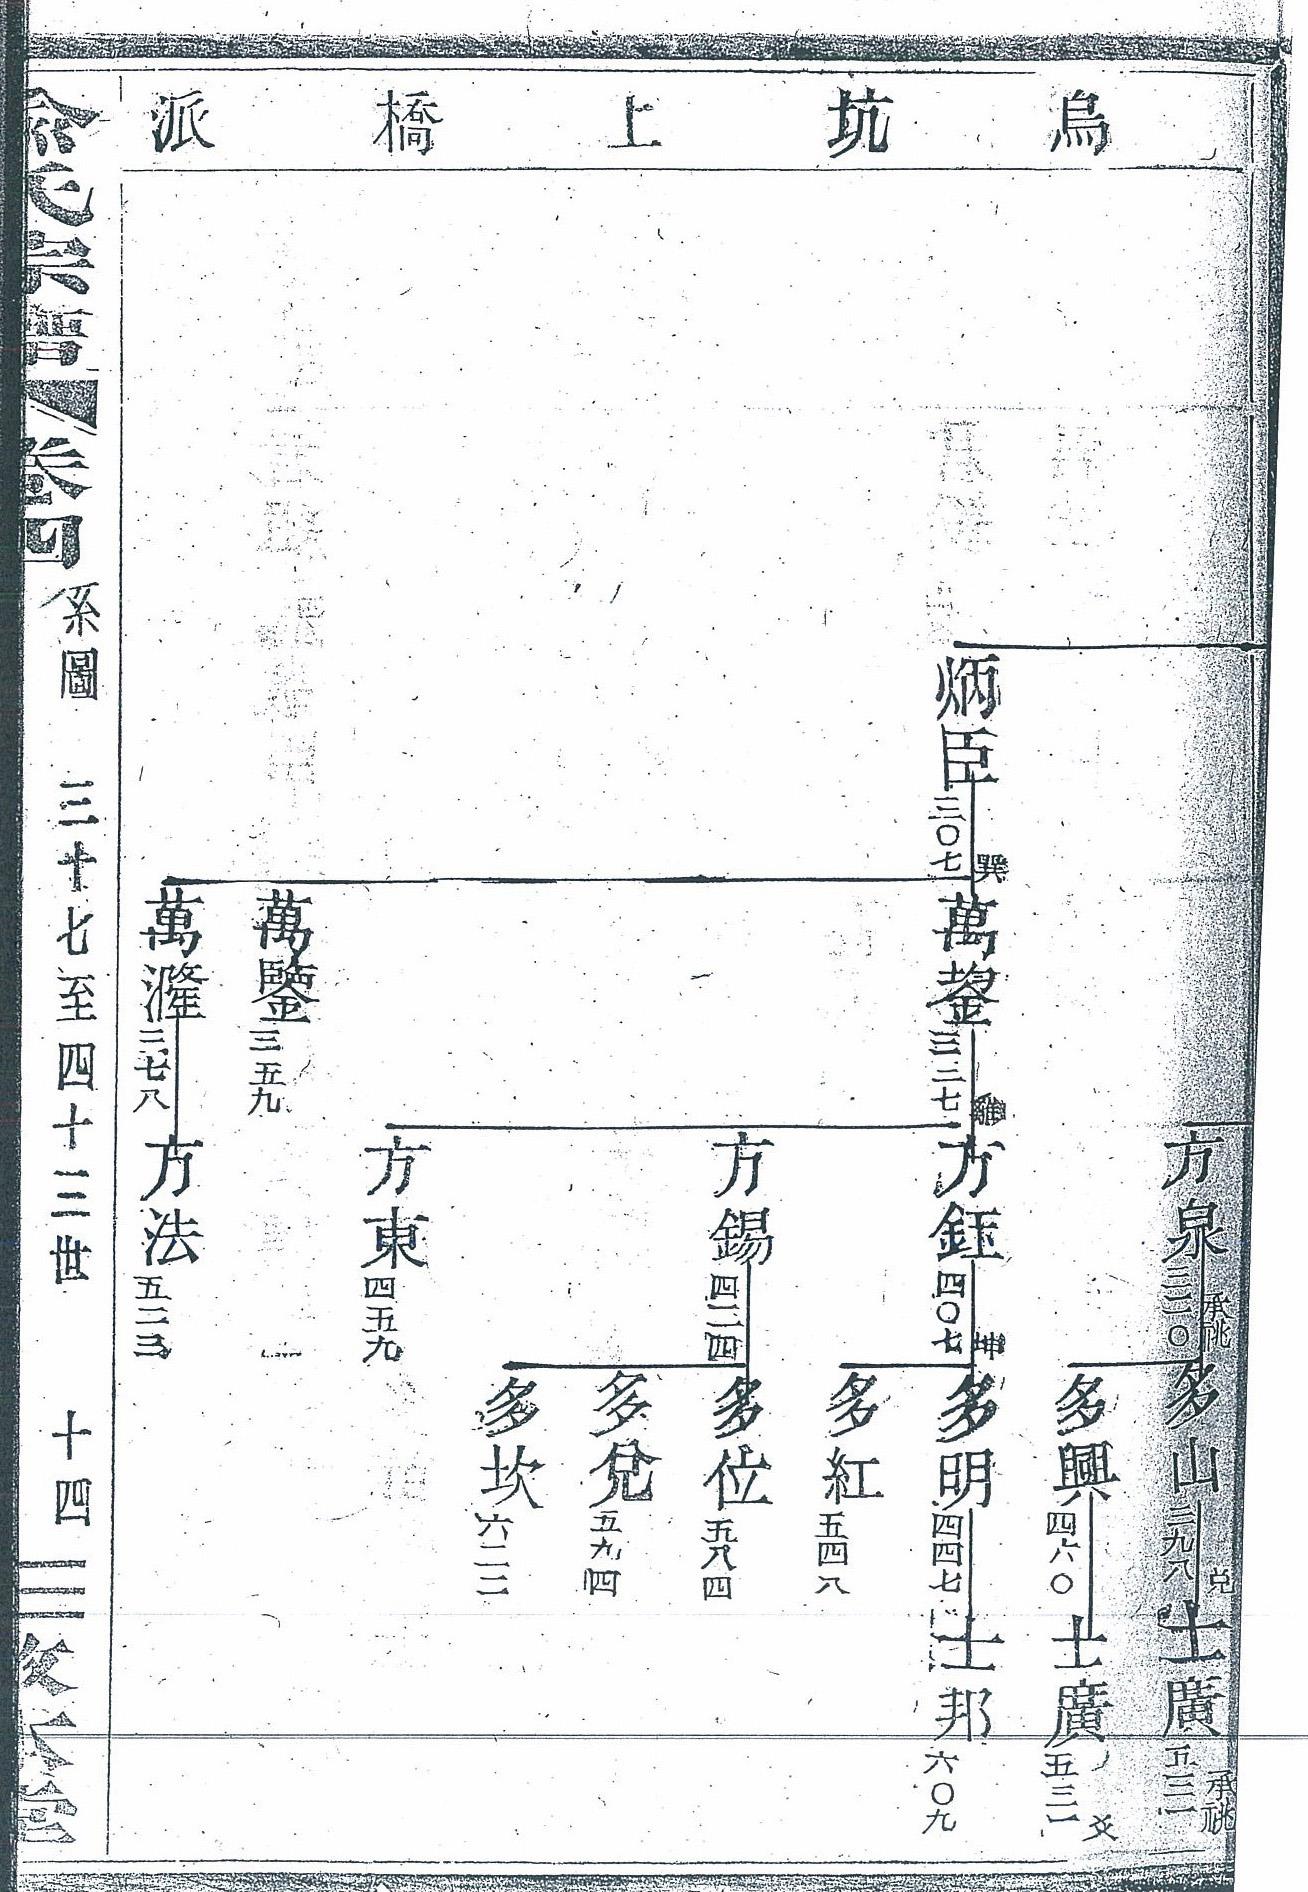 烏坑上橋派
炳臣
三〇七
巽
方泉
三二〇
承祧
多山
三九八
兑
士廣
五三一
承祧
多興
四六〇
士廣
五三一
爻
萬鋆
三三七
離
方鈺
四〇七
坤
多明
四四七
士邦
六〇九
多紅
五四八
方錫
四二四
多位
五八四
多兌
五九四
多坎
六二二
方東
四五九
萬鑒
三五九
萬漋
三七八
方法
五二三
宗譜
卷四
系圖
三十七至四十三世
十四